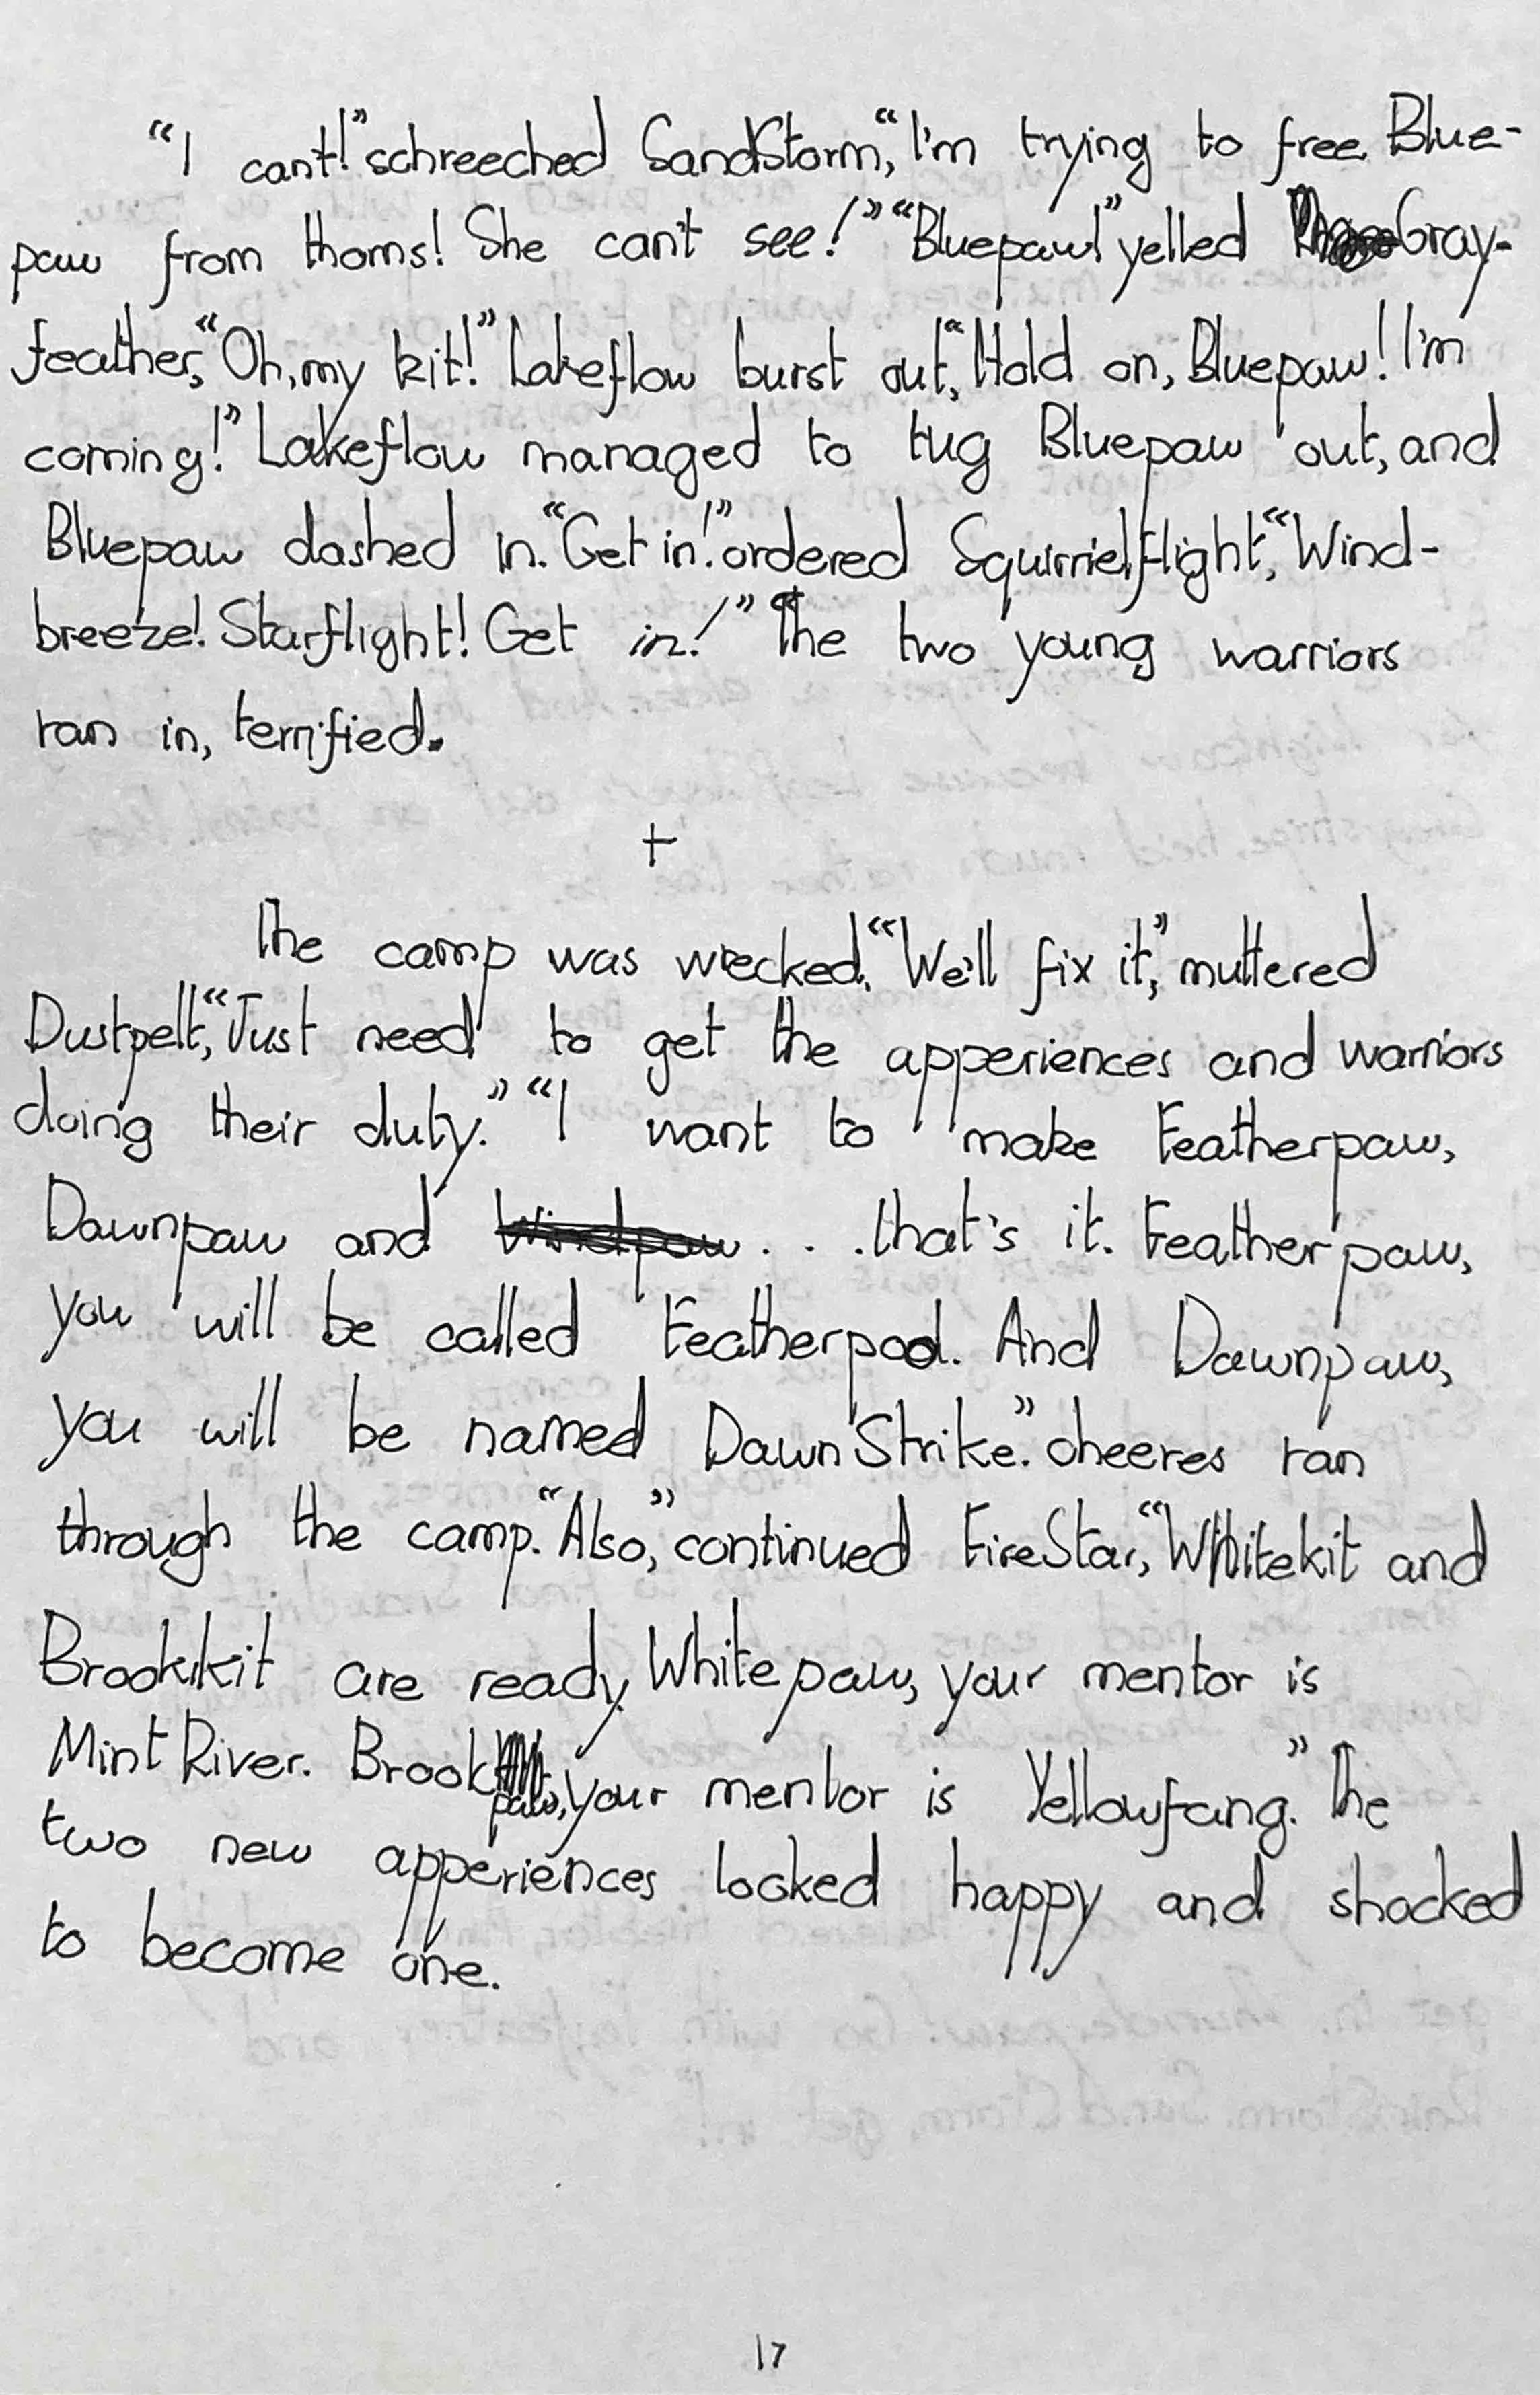 “I cant!” schreeched SandStorm, “I'm trying to free Blue-
paw from thorns! She can't see!” “Bluepaw!” yelled Gray-
feather, “Oh, my kit!” Lakeflow burst out, “Hold on, Bluepaw! I'm
coming!” Lakeflow managed to tug Bluepaw out, and
Bluepaw dashed in. “Get in!” ordered Squirrielflight, “Wind-
breeze! Starflight! Get in!” The two young warriors
ran in, terrified.
+
The camp was wrecked. “We'll fix it,” muttered
Dustpelt, “Just need to get the apperiences and warriors
doing their duty.” “I want to make Featherpaw,
Dawnpaw and Windpaw . . . that's it. Featherpaw,
you will be called Featherpool. And Dawnpaw,
you will be named DawnStrike.” cheeres ran
through the camp. “Also,” continued FireStar, “Whitekit and
Brookkit are ready. Whitepaw, your mentor is
MintRiver. Brookpaw, your mentor is Yellowfang.” The
two new apperiences looked happy and shocked
to become one.
17